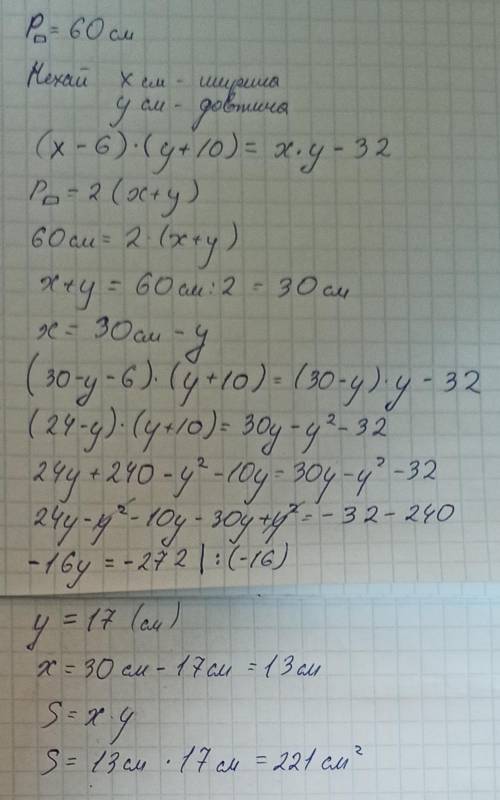 P▭ = 60 см
Нехай x см - ширина
y см - довжина
(x - 6) · (y + 10) = x · y - 32
P▭ = 2 (x + y)
60 см = 2 · (x + y)
x + y = 60 см : 2 = 30 см
x = 30 см - y
(30 - y - 6) · (y + 10) = (30 - y) · y - 32
(24 - y) · (y + 10) = 30y - y² - 32
24y + 240 - y² - 10y = 30y - y² - 32
24y - y² - 10y - 30y + y² = -32 - 240
-16y = -272 | : (-16)
y = 17 (см)
x = 30 см - 17 см = 13 см
S = x · y
S = 13 см · 17 см = 221 см²